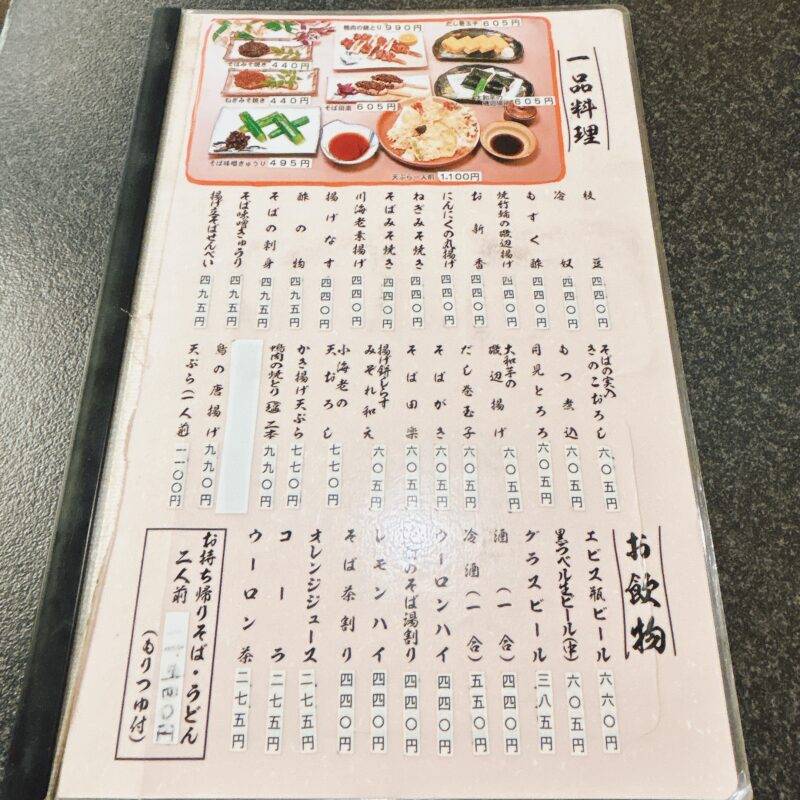 一品料理
そばみそ焼き 440円
鴨肉の焼とり 990円
だし巻玉子 605円
ねぎみそ焼き 440円
そば田楽 605円
大和芋の磯辺揚げ 605円
そば味噌きゅうり 495円
天ぷら一人前 1,100円
枝豆 四四〇円
冷奴 四四〇円
もずく酢 四四〇円
焼竹輪の磯辺揚げ 四四〇円
お新香 四四〇円
にんにくの丸揚げ 四四〇円
ねぎみそ焼き 四四〇円
そばみそ焼き 四四〇円
川海老素揚げ 四四〇円
揚げなす 四四〇円
酢の物 四九五円
そばの刺身 四九五円
そば味噌きゅうり 四九五円
揚げ立そばせんべい 四九五円
そばの実入
きのこおろし 六〇五円
もつ煮込 六〇五円
月見とろろ 六〇五円
大和芋の
磯辺揚げ 六〇五円
だし巻玉子 六〇五円
そばがき 六〇五円
そば田楽 六〇五円
揚げ餅しらす
みぞれ和え 六〇五円
小海老の
天おろし 七七〇円
かき揚げ天ぷら 七七〇円
鴨肉の焼とり(塩)二本 九九〇円
鳥の唐揚げ 九九〇円
天ぷら(一人前) 一一〇〇円
お飲物
エビス瓶ビール 六六〇円
黒ラベル生ビール(中) 六〇五円
グラスビール 三八五円
酒(一合) 四四〇円
冷酒(一合) 五五〇円
ウーロンハイ 四四〇円
のそば湯割り 四四〇円
レモンハイ 四四〇円
そば茶割り 四四〇円
オレンジジュース 二七五円
コーラ 二七五円
ウーロン茶 二七五円
お持ち帰りそば・うどん
二人前
(もりつゆ付)